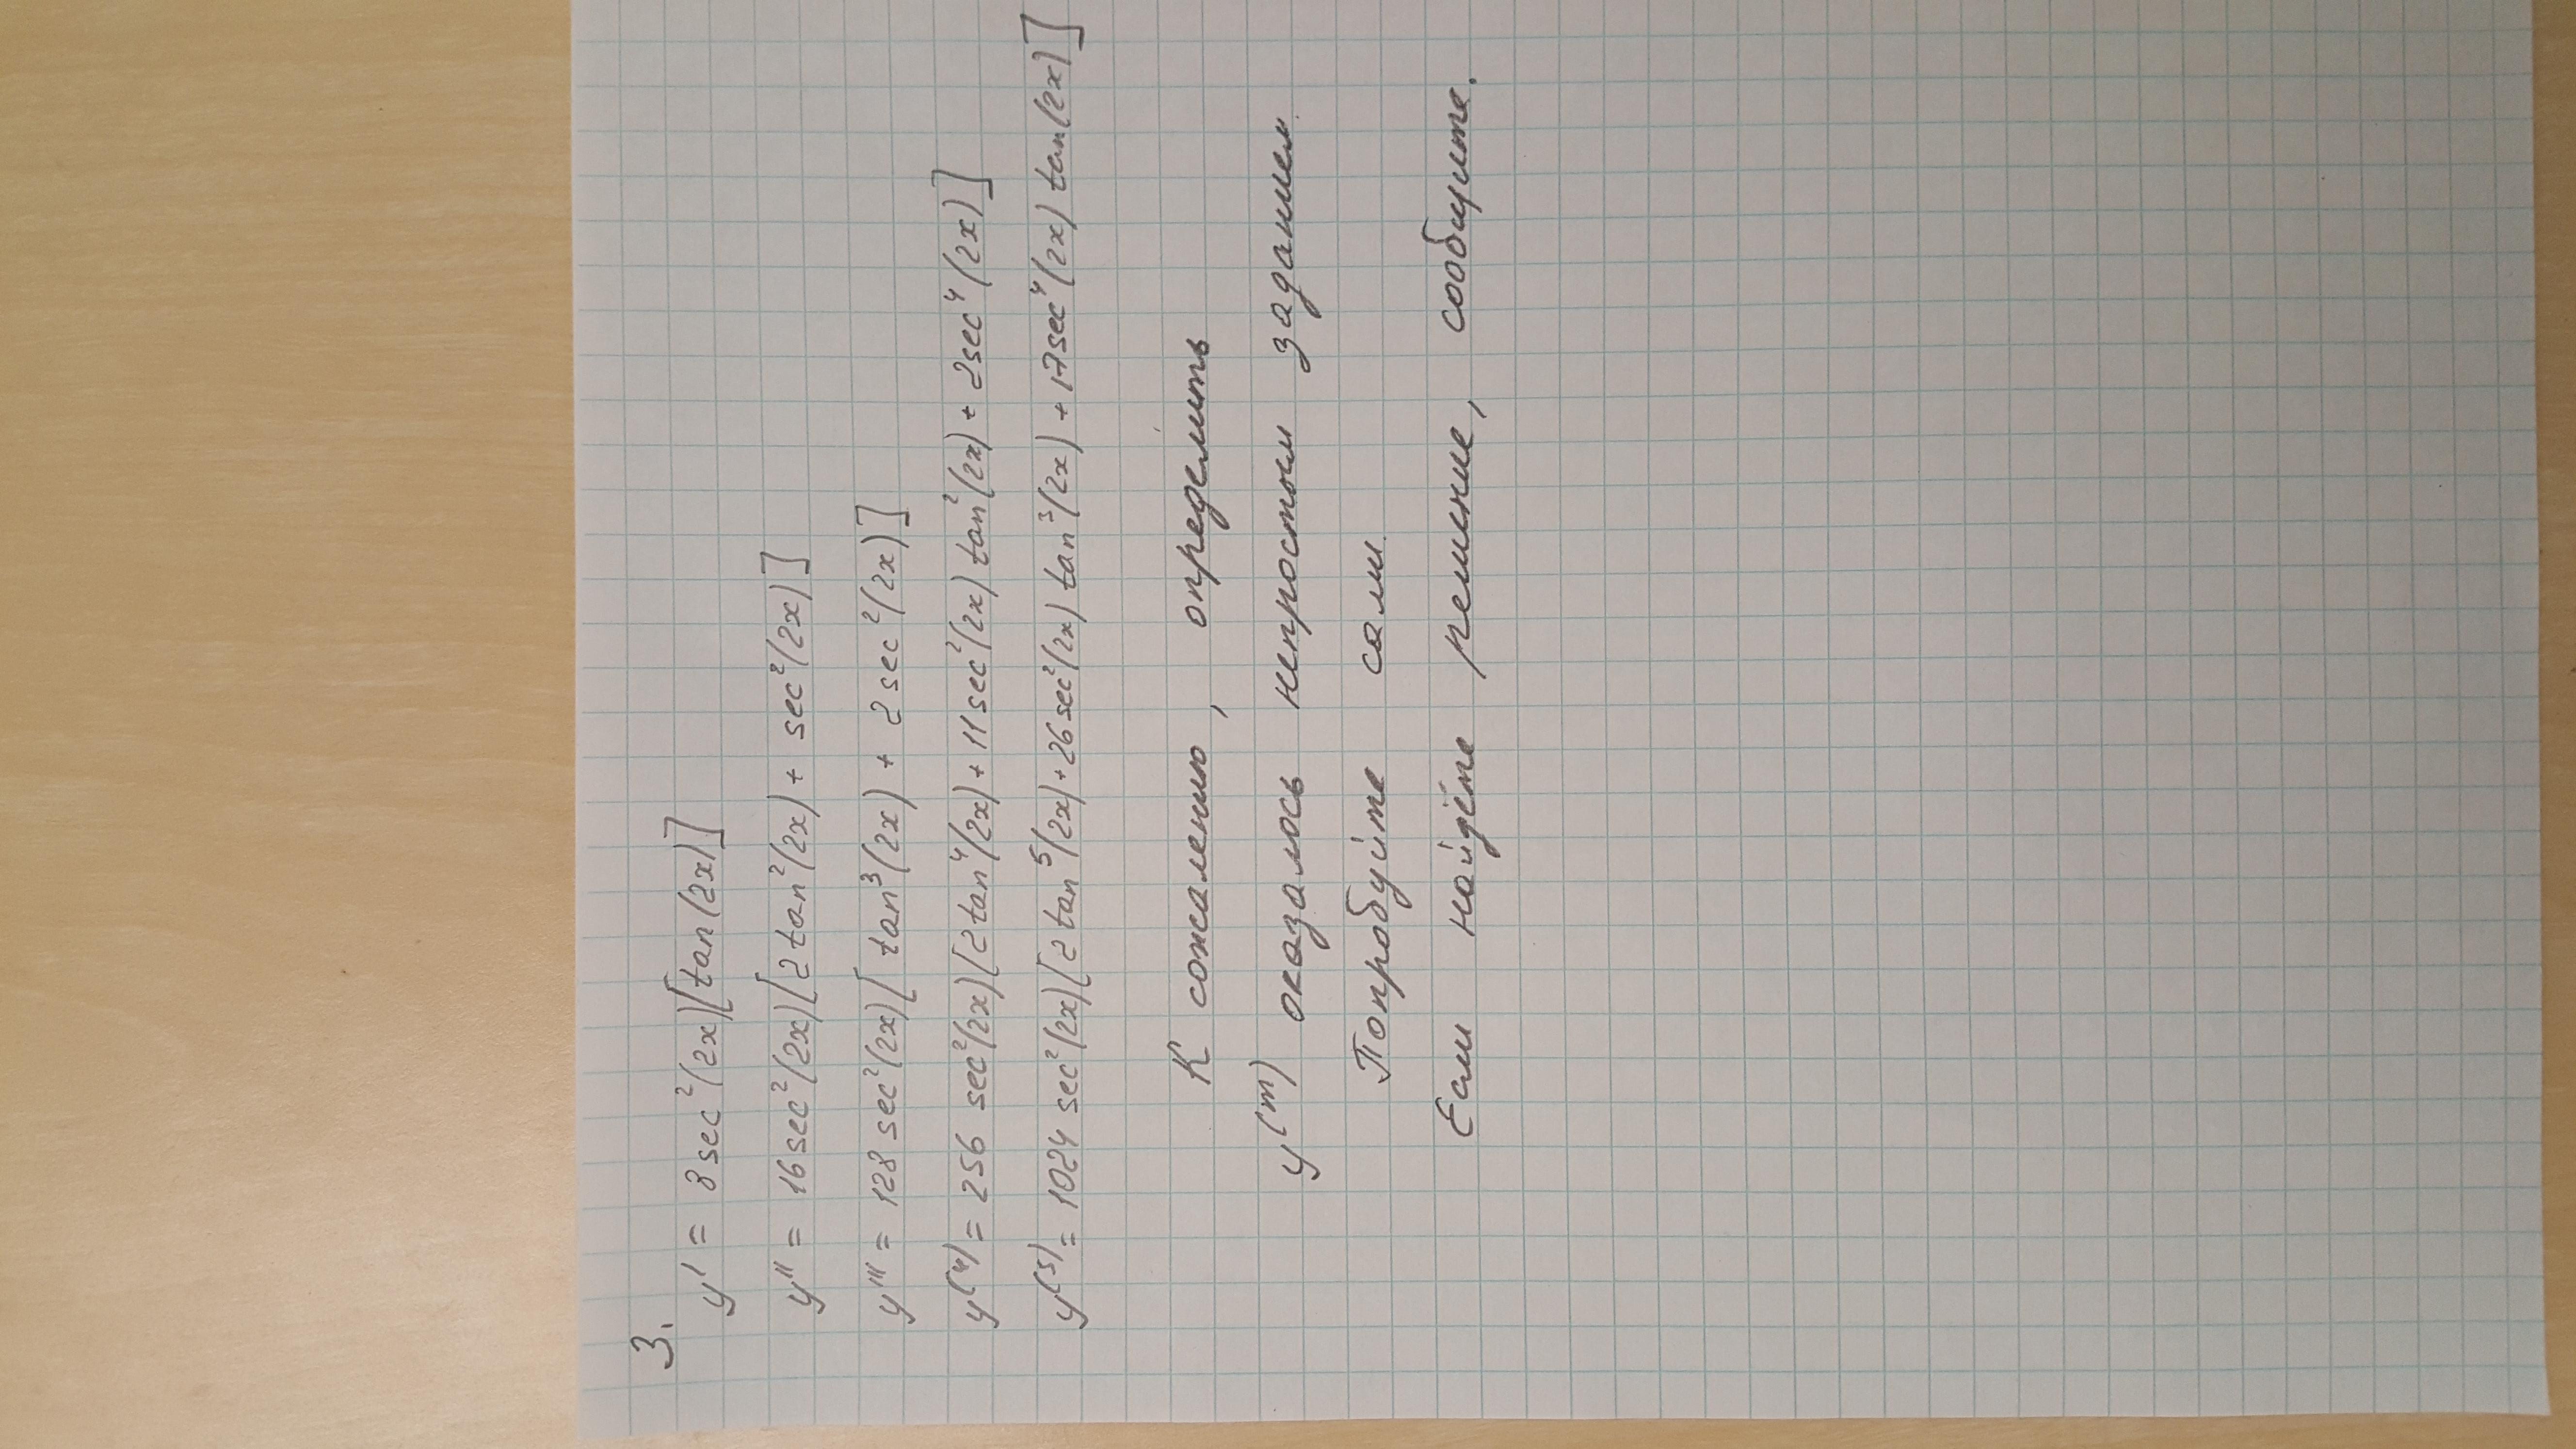 3.
y' = 8sec²(2x)[tan(2x)]
y'' = 16sec²(2x)[2tan²(2x) + sec²(2x)]
y''' = 128 sec²(2x)[tan³(2x) + 2sec²(2x)]
y⁽⁴⁾ = 256 sec²(2x)[2tan⁴(2x) + 11sec²(2x)tan²(2x) + 2sec⁴(2x)]
y⁽⁵⁾ = 1024 sec²(2x)[2tan⁵(2x) + 26sec²(2x)tan³(2x) + 17sec⁴(2x)tan(2x)]
К сожалению, определить
y⁽ᵐ⁾ оказалось непростым заданием.
Попробуйте сами.
Если найдёте решение, сообщите.